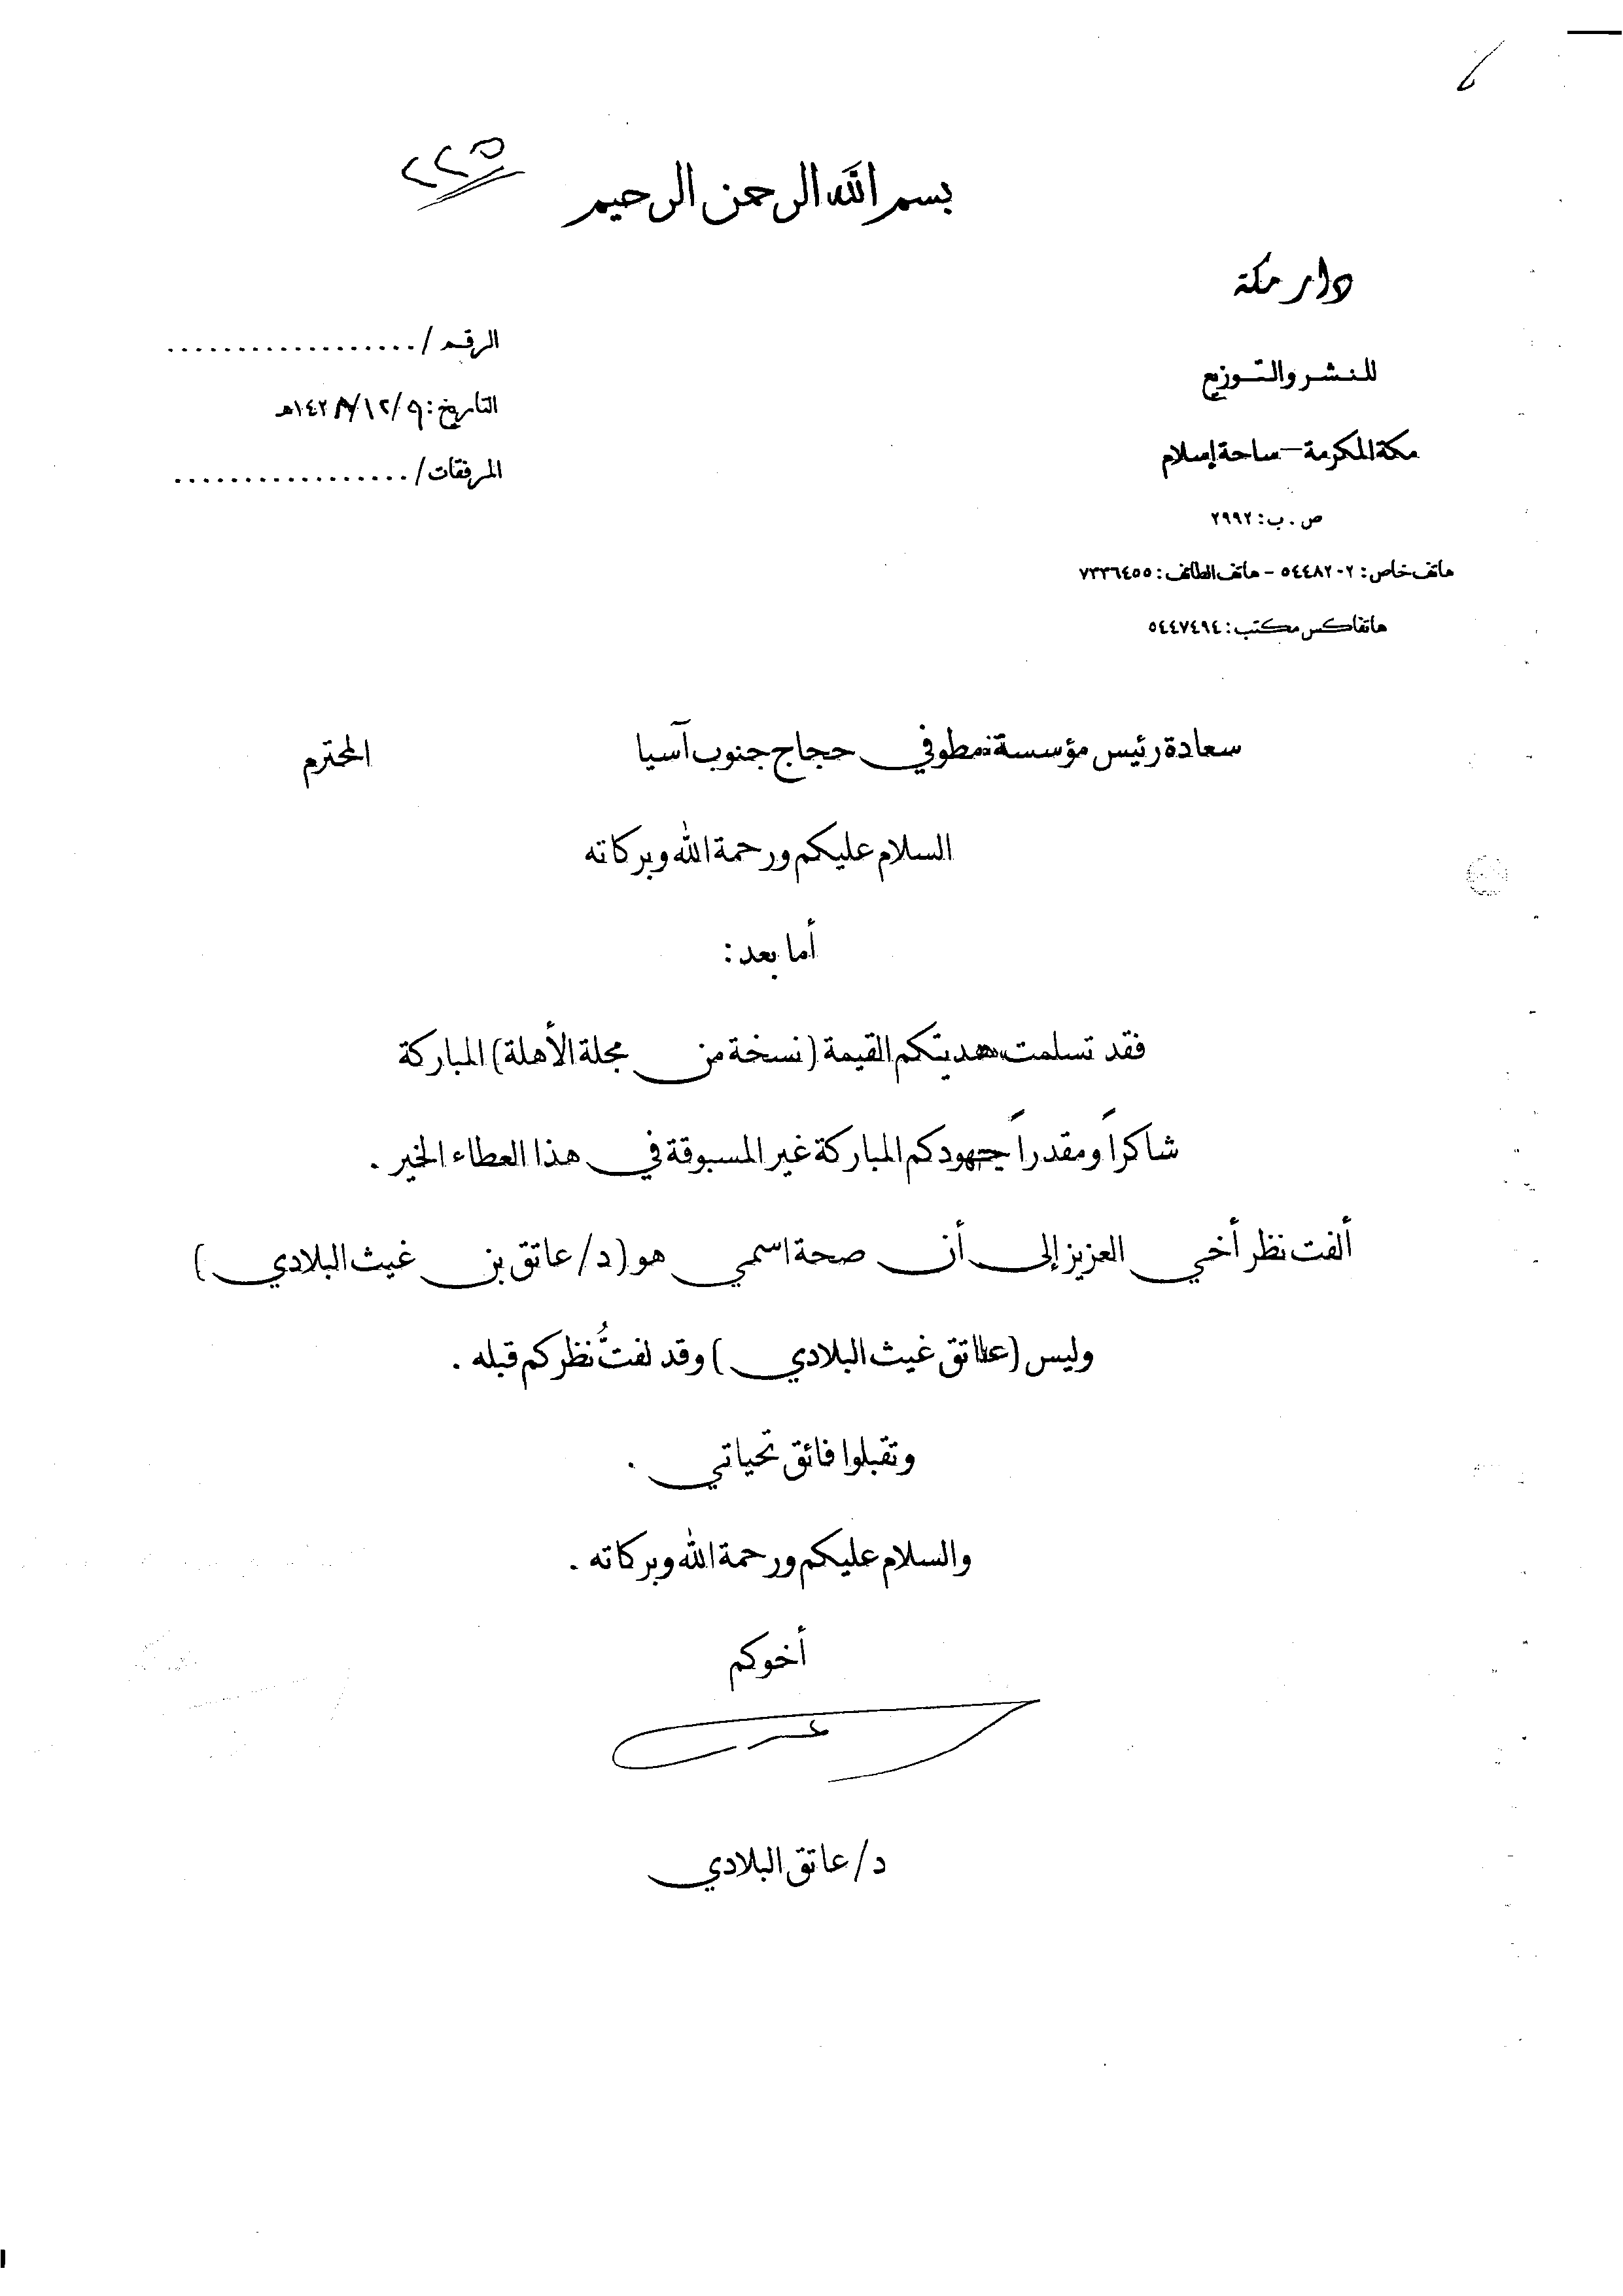 ٢٢٥
بسم الله الرحمن الرحيم
دار مكة
للنشر والتوزيع
مكة المكرمة - ساحة إسلام
ص . ب : ٢٩٩٢
هاتف خاص : ٥٤٤٨٢٠٢ - هاتف الطائف : ٧٣٣٦٤٥٥
هاتفاكس مكتب : ٥٤٤٧٤٩٤
الرقم / ..................
التاريخ : ٩/ ١٢/ ١٤٢٨هـ
المرفقات / .................
سعادة رئيس مؤسسة مطوفي حجاج جنوب آسيا المحترم
السلام عليكم ورحمة الله وبركاته
أما بعد :
فقد تسلمت هديتكم القيمة ( نسخة من مجلة الأهلة ) المباركة
شاكراً ومقدراً جهودكم المباركة غير المسبوقة في هذا العطاء الخير .
ألفت نظر أخي العزيز إلى أن صحة اسمي هو ( د/ عاتق بن غيث البلادي )
وليس ( عاتق غيث البلادي ) وقد لفتُّ نظركم قبله .
وتقبلوا فائق تحياتي .
والسلام عليكم ورحمة الله وبركاته .
أخوكم
د/ عاتق البلادي